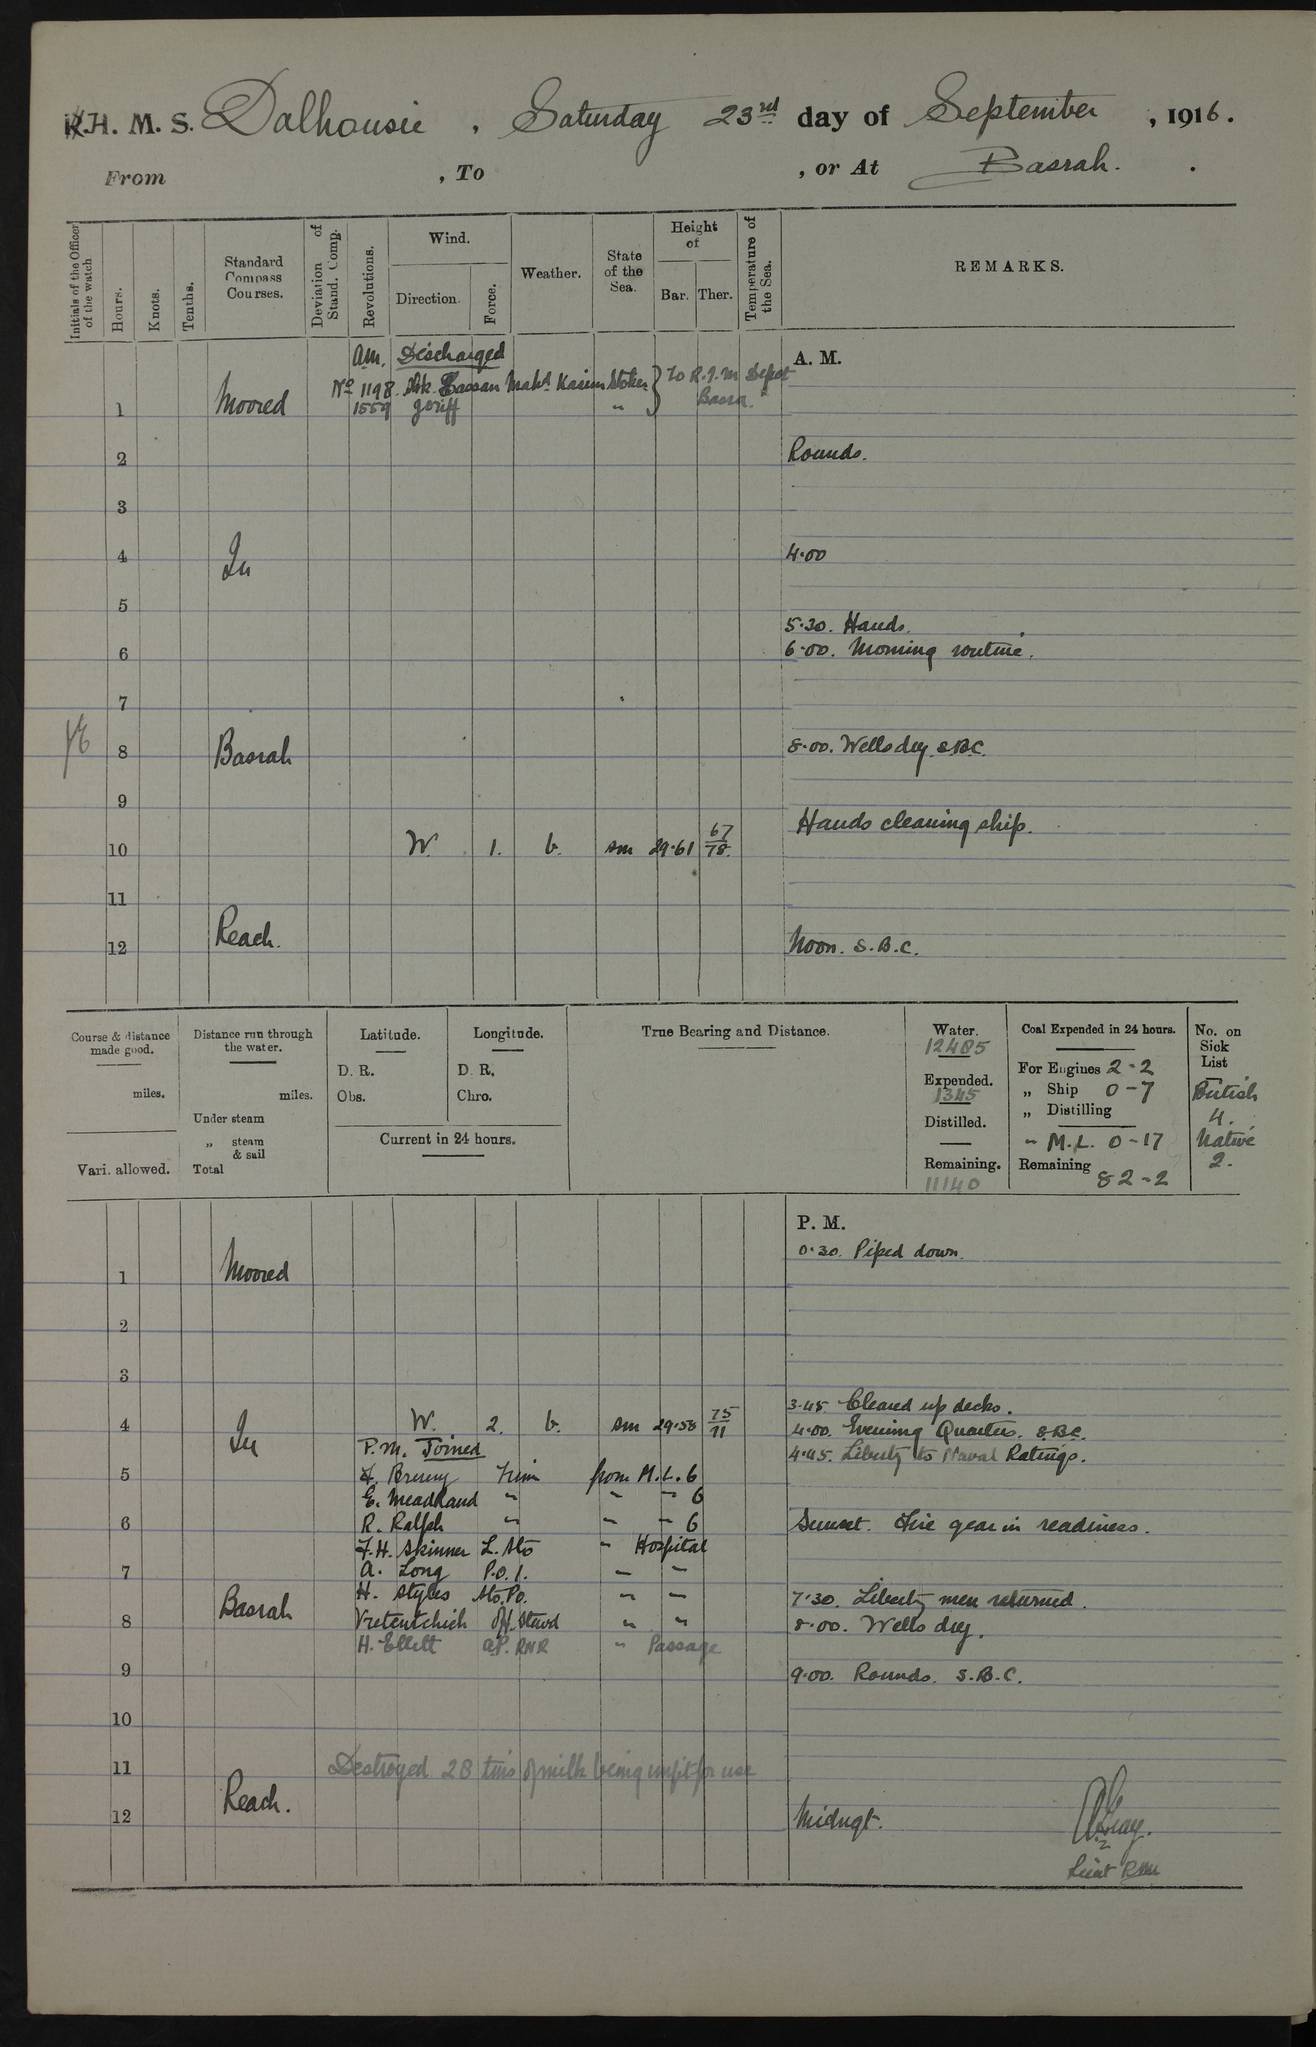 R.H. M. S. Dalhousie , Saturday 23rd day of September , 1916.
From , To , or At Basrah.
Initials of the Officer of the watch
Hours.
Knots.
Tenths.
Standard Compass Courses.
Deviation of Stand. Comp.
Revolutions.
Wind.
Direction.
Force.
Weather.
State of the Sea.
Height of
Bar. Ther.
Temperature of the Sea.
REMARKS.
A.M.
am. Discharged
No 1198. Hassan Mahd Karim Stoker } To R.I.M Depot
1 Moored 1559 " Basra
2 Rounds.
3
4 In 4.00
5
5.30. Hands.
6 6.00. Morning routine.
7
8 Basrah 8.00. Wells dry. S.B.C.
9
Hands cleaning ship.
10 W. 1. b. sm 29.61 67/78.
11
12 Reach. Noon. S.B.C.
Course & distance made good.
miles.
Vari. allowed.
Distance run through the water.
miles.
Under steam
„ steam & sail
Total
Latitude.
D. R.
Obs.
Longitude.
D. R.
Chro.
Current in 24 hours.
True Bearing and Distance.
Water.
12485
Expended.
1345
Distilled.
Remaining.
11140
Coal Expended in 24 hours.
For Engines 2-2
„ Ship 0-7
„ Distilling
" M.L. 0-17
Remaining 82-2
No. on Sick List
British
4.
Native
2.
P. M.
0.30. Piped down.
1 Moored
2
3
3.45. Cleared up decks.
4 In W. 2. b. sm 29.58 75/71 4.00. Evening Quarters. S.B.C.
P.M. Joined 4.45. Liberty to Naval Ratings.
5 from M.L. 6
E. " " " 6
6 R. Ralph " " " 6 Sunset. Fire gear in readiness.
F.H. Skinner L. Sto " Hospital
7 A. Long P.O.1. " "
H. Styles Sto. Po. " " 7.30. Liberty men returned.
8 Basrah Off. Stewd " " 8.00. Wells dry.
H. Ellett RNR " Passage
9 9.00. Rounds. S.B.C.
10
11 Destroyed 28 tins of milk being unfit for use
12 Reach. Midngt.
Lieut RIM